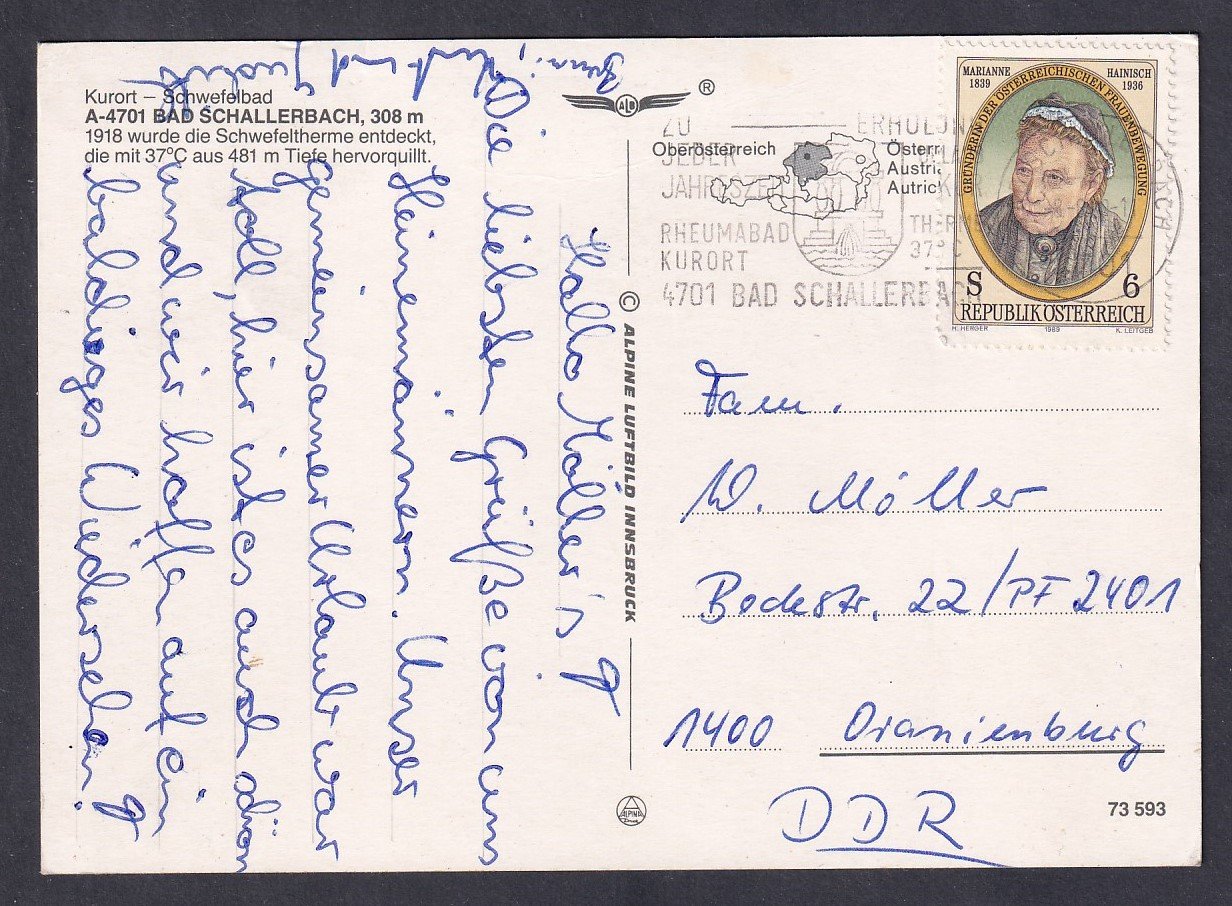 Kurort – Schwefelbad
A-4701 BAD SCHALLERBACH, 308 m
1918 wurde die Schwefeltherme entdeckt,
die mit 37°C aus 481 m Tiefe hervorquillt.
Hallo Möller's !
Die liebsten Grüße von uns
Heimermännern. Unser
gemeinsamer Urlaub war
toll, hier ist es auch schön
und wir hoffen auf ein
baldiges Wiedersehen !
und
© ALPINE LUFTBILD INNSBRUCK
ALB
®
Oberösterreich
Österr
Austri
Autric
ZU
JEDER
JAHRESZEI
ERHOLUN
RHEUMABAD
KURORT
THERME
37°C
4701 BAD SCHALLERBACH
MARIANNE
1839
HAINISCH
1936
GRÜNDERIN DER ÖSTERREICHISCHEN FRAUENBEWEGUNG
S 6
REPUBLIK ÖSTERREICH
H. HERGER 1989 K. LEITGEB
Fam.
W. Möller
Bockstr. 22/PF 2401
1400 Oranienburg
DDR
ALPINA
Druck
73 593